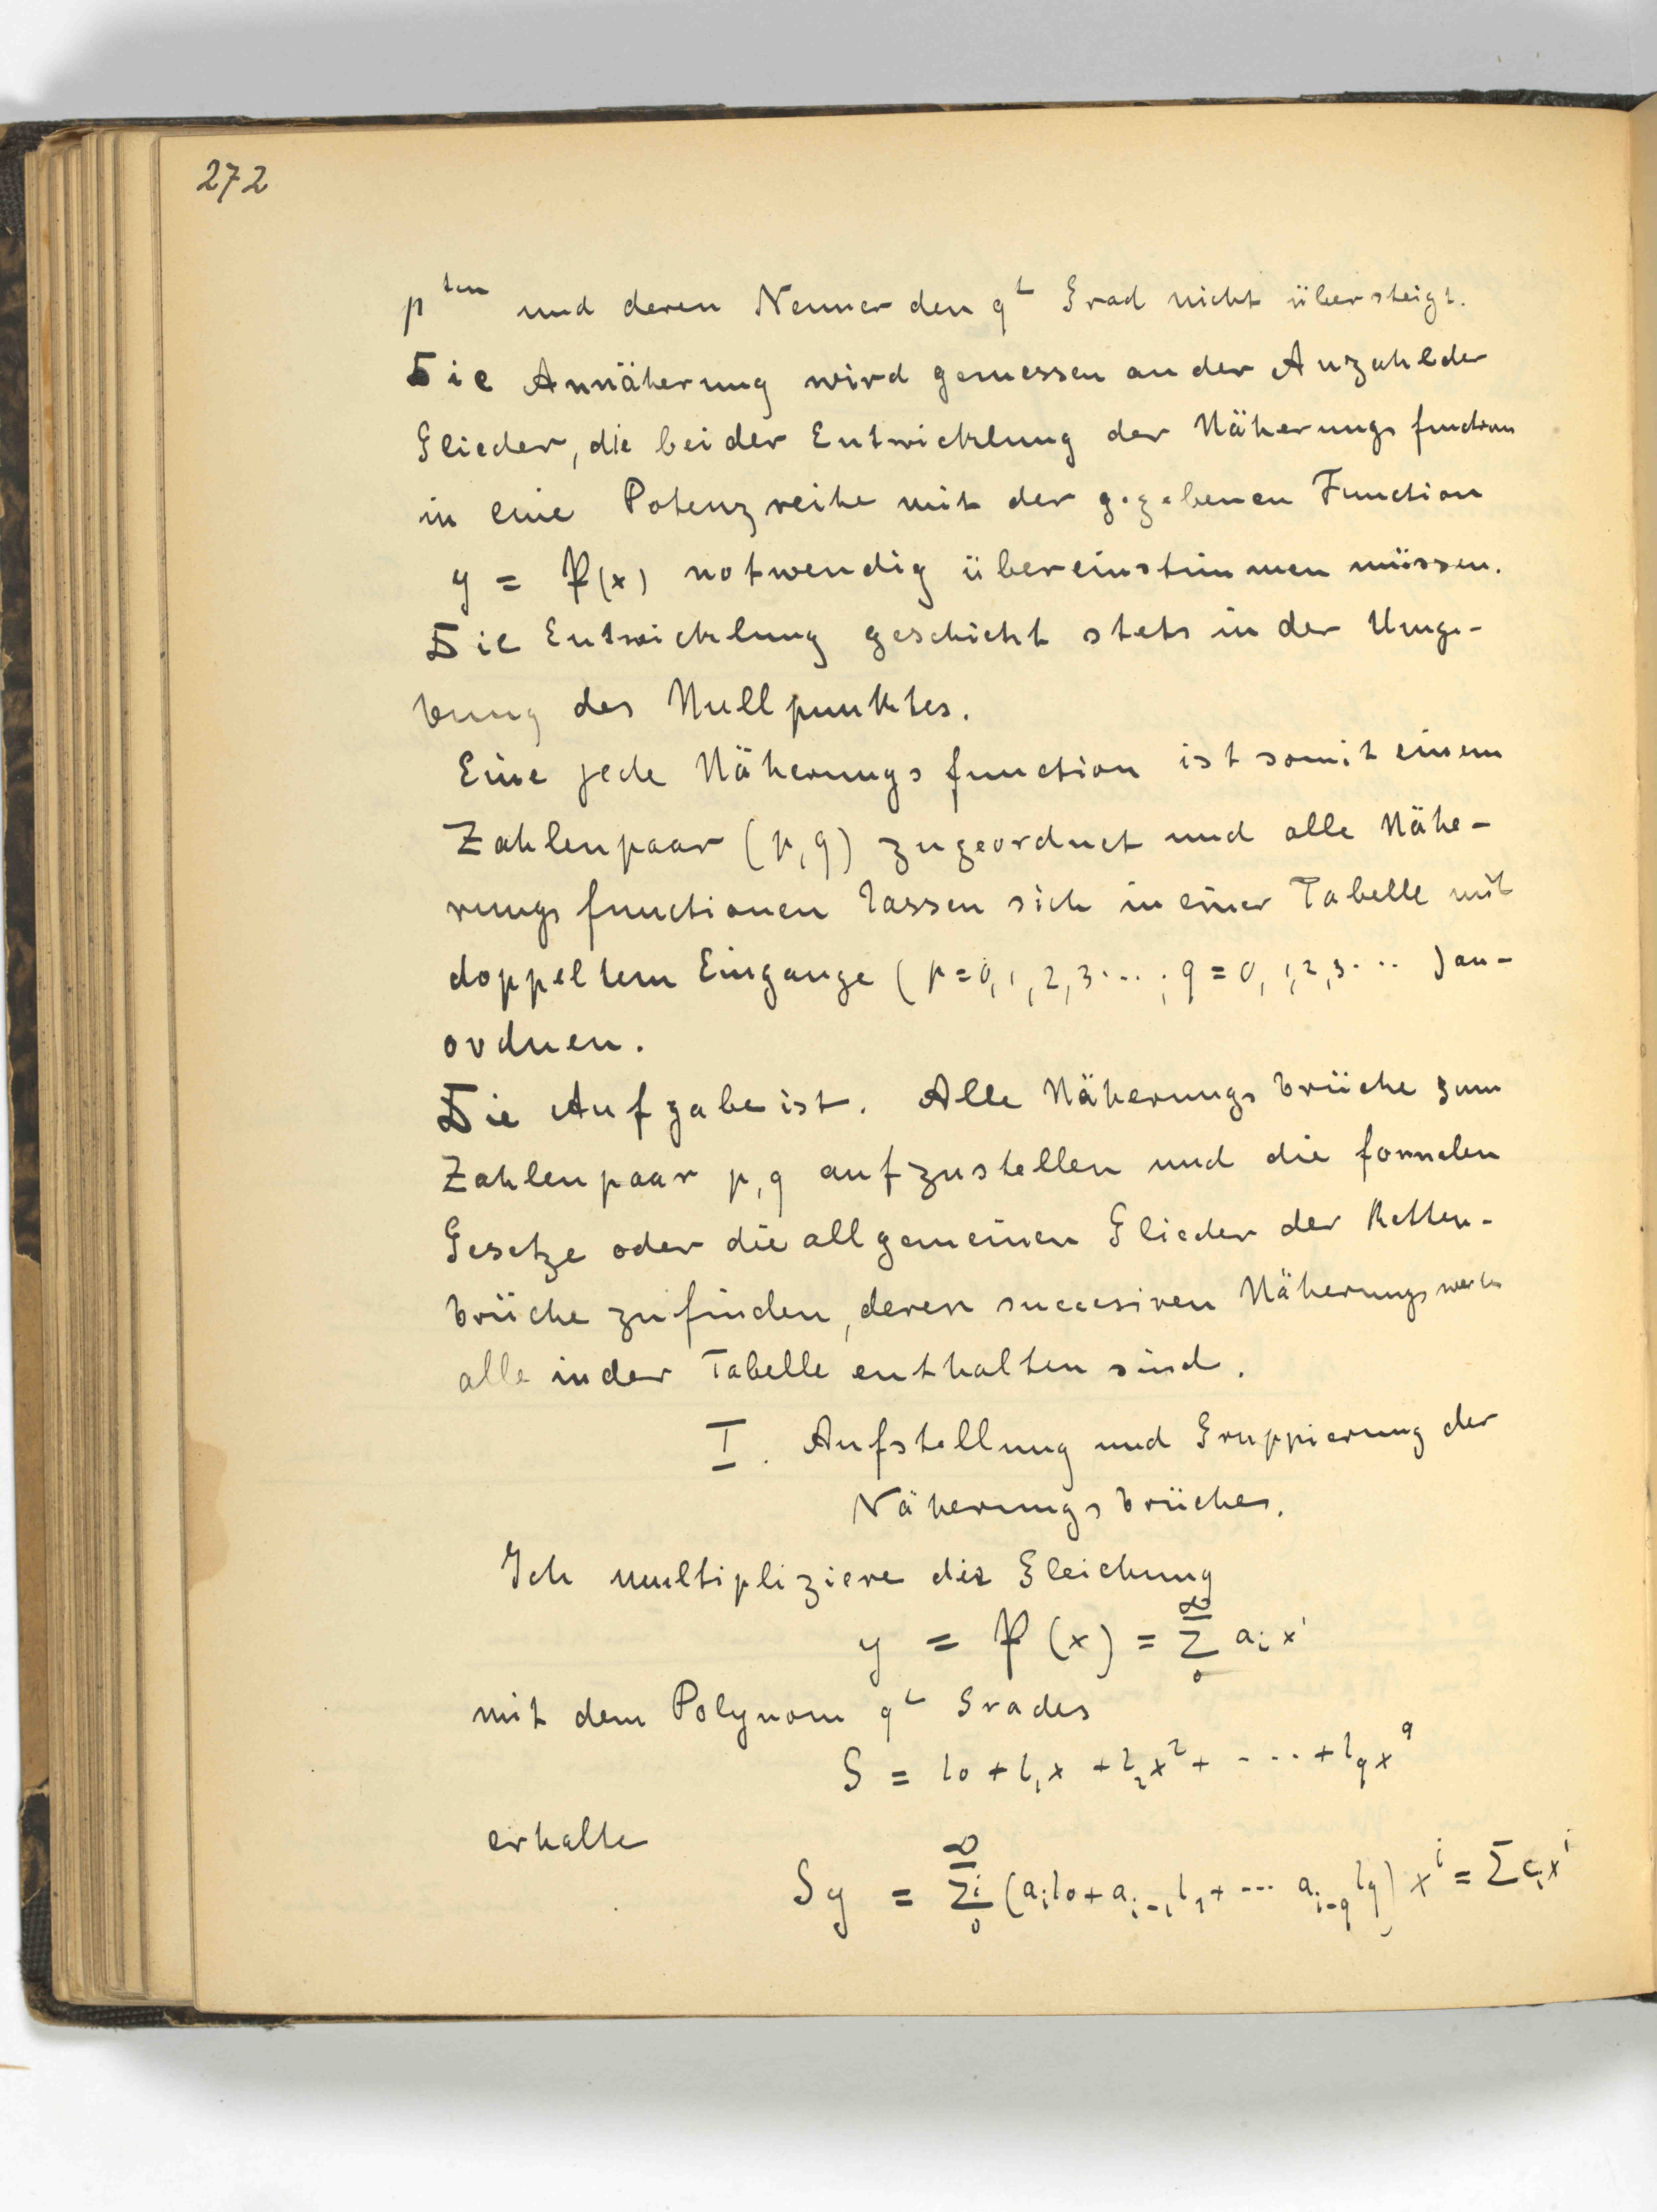 272
p^ten und deren Nenner den q^t Grad nicht übersteigt.
Die Annäherung wird gemessen an der Anzahl der
Glieder, die bei der Entwicklung der Näherungsfunction
in eine Potenzreihe mit der gegebenen Function
y = P(x) notwendig übereinstimmen müssen.
Die Entwicklung geschieht stets in der Umge-
bung des Nullpunktes.
Eine jede Näherungsfunction ist somit einem
Zahlenpaar (p, q) zugeordnet und alle Nähe-
rungsfunctionen lassen sich in einer Tabelle mit
doppeltem Eingange (p = 0, 1, 2, 3 ... ; q = 0, 1, 2, 3 ... ) an-
ordnen.
Die Aufgabe ist. Alle Näherungsbrüche zum
Zahlenpaar p, q aufzustellen und die formalen
Gesetze oder die allgemeinen Glieder der Ketten-
brüche zu finden, deren succesiven Näherungswerte
alle in der Tabelle enthalten sind.
I. Aufstellung und Gruppierung der
Näherungsbrüche.
Ich multipliziere die Gleichung
y = P(x) = Σ_0^∞ a_i x^i
mit dem Polynom q^t Grades
S = l_0 + l_1 x + l_2 x^2 + ---- + l_q x^q
erhalte
Sy = Σ_0^∞ i (a_i l_0 + a_{i-1} l_1 + --- a_{i-q} l_q) x^i = Σ c_i x^i